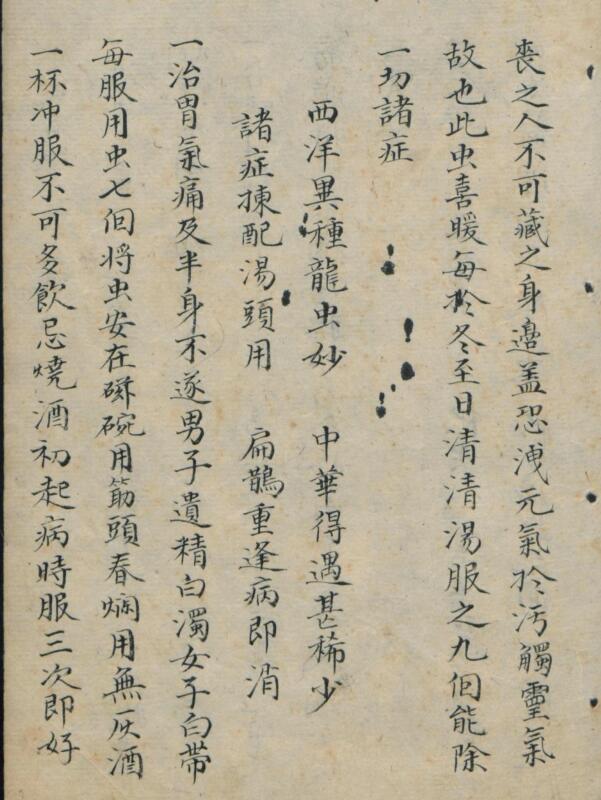 喪之人不可藏之身邊盖恐洩元氣扵汚觸靈氣
故也此虫喜暖每扵冬至日清清湯服之九個能除
一切諸症
西洋異種龍虫妙　中華得遇甚稀少
諸症揀配湯頭用　扁鵲重逢病即消
一治胃氣痛及半身不遂男子遺精白濁女子白帶
每服用虫七個將虫安在磁碗用筯頭舂爛用無灰酒
一杯冲服不可多飲忌燒酒初起病時服三次即好